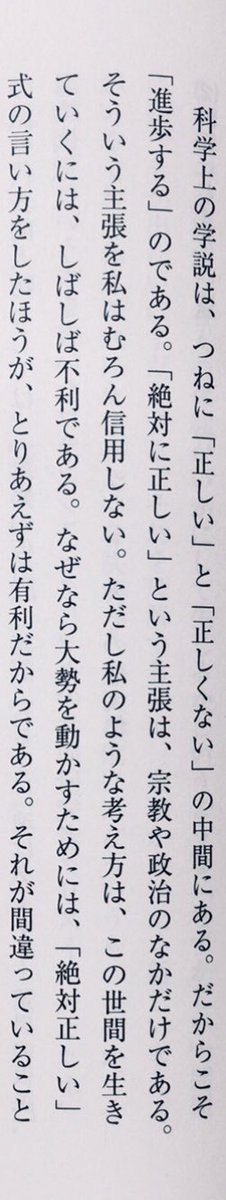 科学上の学説は、つねに「正しい」と「正しくない」の中間にある。だからこそ
「進歩する」のである。「絶対に正しい」という主張は、宗教や政治のなかだけである。
そういう主張を私はむろん信用しない。ただし私のような考え方は、この世間を生き
ていくには、しばしば不利である。なぜなら大勢を動かすためには、「絶対正しい」
式の言い方をしたほうが、とりあえずは有利だからである。それが間違っていること